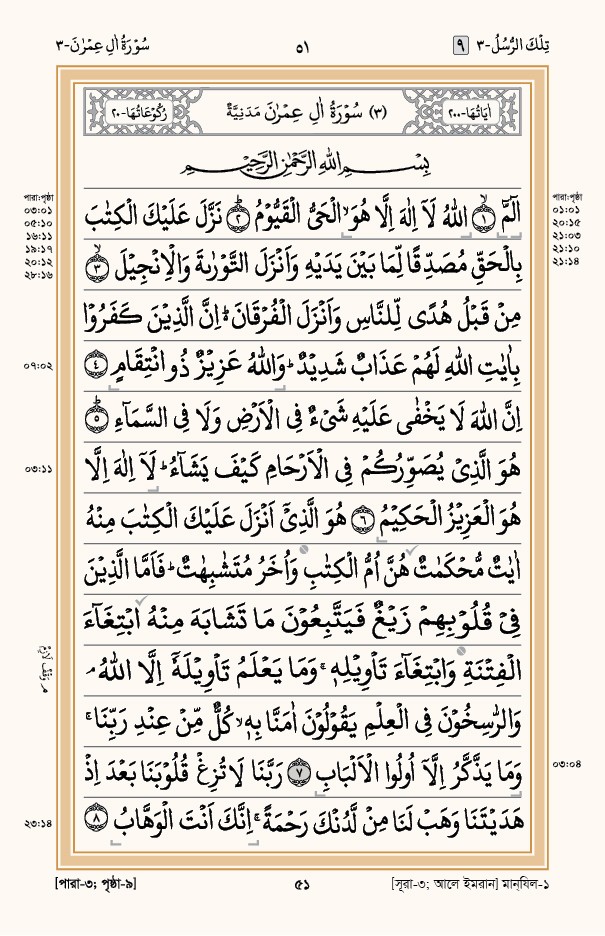 تِلْكَ الرُّسُلُ-٣ ٩
৫১
سُوْرَةُ اٰلِ عِمْرٰنَ-٣
اٰيَاتُهَا-٢٠٠
(٣) سُوْرَةُ اٰلِ عِمْرٰنَ مَدَنِيَّةٌ
رُكُوْعَاتُهَا-٢٠
بِسْمِ اللهِ الرَّحْمٰنِ الرَّحِيْمِ
الٓمّٓ ۙ﴿١﴾ اللهُ لَاۤ اِلٰهَ اِلَّا هُوَ ۙ الْحَيُّ الْقَيُّوْمُ ؕ﴿٢﴾ نَزَّلَ عَلَيْكَ الْكِتٰبَ
بِالْحَقِّ مُصَدِّقًا لِّمَا بَيْنَ يَدَيْهِ وَاَنْزَلَ التَّوْرٰىةَ وَالْاِنْجِيْلَ ۙ﴿٣﴾
مِنْ قَبْلُ هُدًى لِّلنَّاسِ وَاَنْزَلَ الْفُرْقَانَ ؕ۬ اِنَّ الَّذِيْنَ كَفَرُوْا
بِاٰيٰتِ اللهِ لَهُمْ عَذَابٌ شَدِيْدٌ ؕ وَاللهُ عَزِيْزٌ ذُو انْتِقَامٍ ﴿٤﴾
اِنَّ اللهَ لَا يَخْفٰى عَلَيْهِ شَيْءٌ فِى الْاَرْضِ وَلَا فِى السَّمَآءِ ؕ﴿٥﴾
هُوَ الَّذِيْ يُصَوِّرُكُمْ فِى الْاَرْحَامِ كَيْفَ يَشَآءُ ؕ لَاۤ اِلٰهَ اِلَّا
هُوَ الْعَزِيْزُ الْحَكِيْمُ ﴿٦﴾ هُوَ الَّذِيْۤ اَنْزَلَ عَلَيْكَ الْكِتٰبَ مِنْهُ
اٰيٰتٌ مُّحْكَمٰتٌ هُنَّ اُمُّ الْكِتٰبِ وَاُخَرُ مُتَشٰبِهٰتٌ ؕ فَاَمَّا الَّذِيْنَ
فِيْ قُلُوْبِهِمْ زَيْغٌ فَيَتَّبِعُوْنَ مَا تَشَابَهَ مِنْهُ ابْتِغَآءَ
الْفِتْنَةِ وَابْتِغَآءَ تَاْوِيْلِهٖ ۚ وَمَا يَعْلَمُ تَاْوِيْلَهٗۤ اِلَّا اللهُ ۘ
وَالرّٰسِخُوْنَ فِى الْعِلْمِ يَقُوْلُوْنَ اٰمَنَّا بِهٖ ۙ كُلٌّ مِّنْ عِنْدِ رَبِّنَا ۚ
وَمَا يَذَّكَّرُ اِلَّاۤ اُولُوا الْاَلْبَابِ ﴿٧﴾ رَبَّنَا لَا تُزِغْ قُلُوْبَنَا بَعْدَ اِذْ
هَدَيْتَنَا وَهَبْ لَنَا مِنْ لَّدُنْكَ رَحْمَةً ۚ اِنَّكَ اَنْتَ الْوَهَّابُ ﴿٨﴾
পারা:পৃষ্ঠা
০৩:০১
০৫:১০
১৬:১১
১৯:১৭
২০:১২
২৮:১৬
০৭:০২
০৩:১১
২৩:১৪
পারা:পৃষ্ঠা
০১:০১
২০:১৫
২১:০৩
২১:১০
২১:১৪
০৩:০৪
[পারা-৩; পৃষ্ঠা-৯]
৫১
[সূরা-৩; আলে ইমরান] মান্‌যিল-১